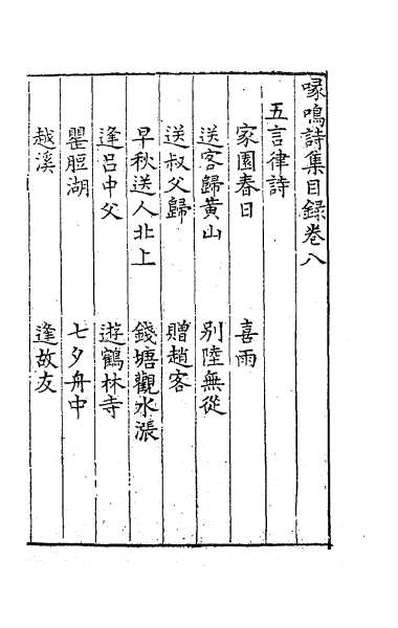 喙鳴詩集目録卷八
五言律詩
家園春日　喜雨
送客歸黃山　別陸無從
送叔父歸　贈趙客
早秋送人北上　錢塘觀水漲
逢呂中父　遊鶴林寺
罌脰湖　七夕舟中
越溪　逢故友